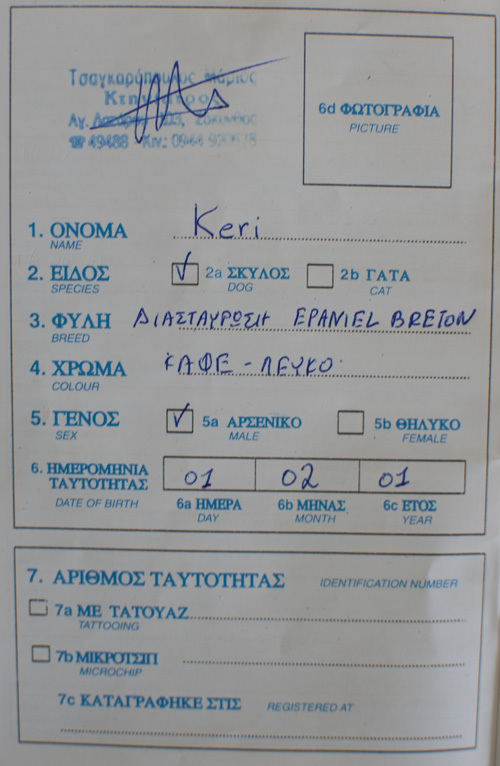 Τσαγκαρόπουλος Μάριος
Κτηνίατρος
Αγ. Λαζάρου 103, Ζάκυνθος
☎ 49488 Κιν: 0944
6d ΦΩΤΟΓΡΑΦΙΑ
PICTURE
1. ΟΝΟΜΑ Keri
NAME
2. ΕΙΔΟΣ 2a ΣΚΥΛΟΣ 2b ΓΑΤΑ
SPECIES DOG CAT
3. ΦΥΛΗ ΔΙΑΣΤΑΥΡΩΣΗ EPANIEL BRETON
BREED
4. ΧΡΩΜΑ ΚΑΦΕ - ΛΕΥΚΟ
COLOUR
5. ΓΕΝΟΣ 5a ΑΡΣΕΝΙΚΟ 5b ΘΗΛΥΚΟ
SEX MALE FEMALE
6. ΗΜΕΡΟΜΗΝΙΑ 01 02 01
ΤΑΥΤΟΤΗΤΑΣ
DATE OF BIRTH 6a ΗΜΕΡΑ 6b ΜΗΝΑΣ 6c ΕΤΟΣ
DAY MONTH YEAR
7. ΑΡΙΘΜΟΣ ΤΑΥΤΟΤΗΤΑΣ IDENTIFICATION NUMBER
7a ΜΕ ΤΑΤΟΥΑΖ
TATTOOING
7b ΜΙΚΡΟΤΣΙΠ
MICROCHIP
7c ΚΑΤΑΓΡΑΦΗΚΕ ΣΤΙΣ REGISTERED AT